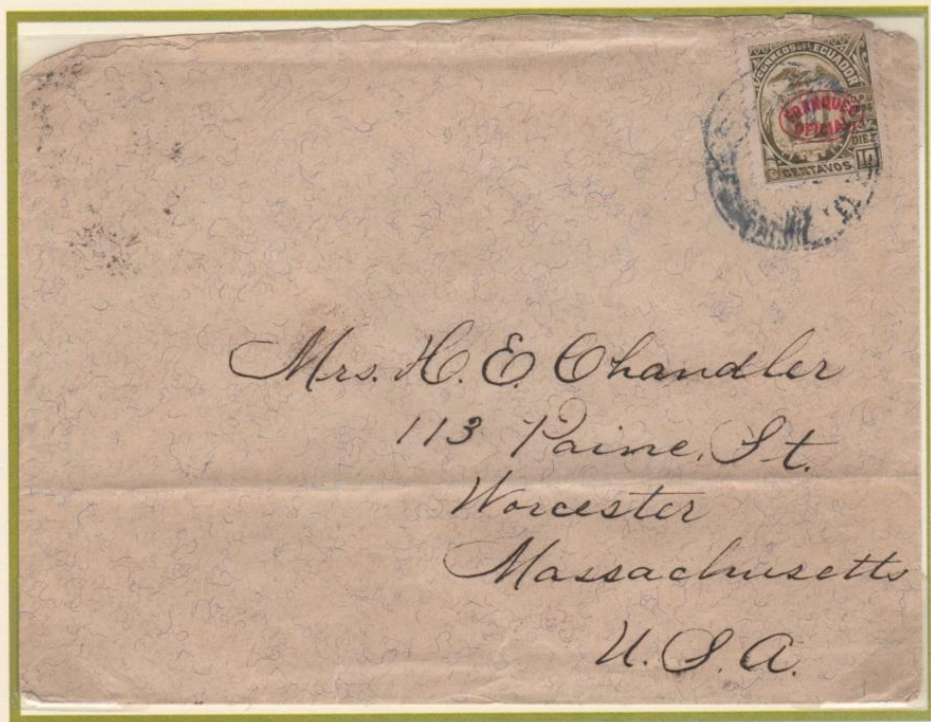 CORREOS DEL ECUADOR
FRANQUEO
OFICIAL
DIEZ
CENTAVOS 10
Mrs. H. E. Chandler
113 Paine. St.
Worcester
Massachusetts
U. S. A.